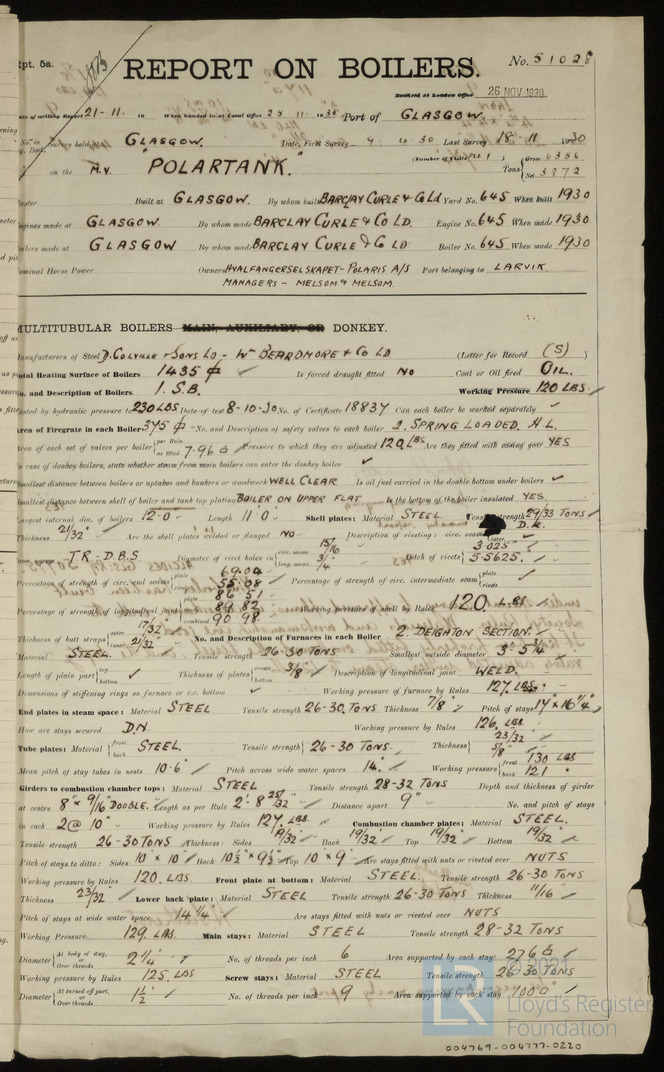 Rpt. 5a.
REPORT ON BOILERS.
No. 51028
Received at London Office 26 NOV 1930
Date of writing Report 21-11 19 When handed in at Local Office 25 11 1930 Port of GLASGOW.
No. in Survey held at GLASGOW. Date, First Survey 9. 4. 30 Last Survey 18-11 1930
Reg. Book. (Number of Visits 41)
on the M.V. "POLARTANK." Tons { Gross 6386 Net 3872
Master Built at GLASGOW. By whom built BARCLAY CURLE & Co Ld Yard No. 645 When built 1930
Engines made at GLASGOW By whom made BARCLAY CURLE & Co LD. Engine No. 645 When made 1930
Boilers made at GLASGOW By whom made BARCLAY CURLE & Co LD Boiler No. 645 When made 1930
Nominal Horse Power Owners HVALFANGERSELSKAPET-POLARIS A/S Port belonging to LARVIK
MANAGERS - MELSOM & MELSOM.
MULTITUBULAR BOILERS MAIN, AUXILIARY, OR DONKEY.
Manufacturers of Steel D. COLVILLE & SONS LD - Wm BEARDMORE & Co LD (Letter for Record (S) )
Total Heating Surface of Boilers 1435 ф Is forced draught fitted NO Coal or Oil fired OIL.
No. and Description of Boilers 1. S.B. Working Pressure 120 LBS
Tested by hydraulic pressure to 230 LBS Date of test 8-10-30 No. of Certificate 18837 Can each boiler be worked separately ✓
Area of Firegrate in each Boiler 375 ф No. and Description of safety valves to each boiler 2. SPRING LOADED, H L.
Area of each set of valves per boiler { per Rule as fitted 7.96 Pressure to which they are adjusted 120 LBS Are they fitted with easing gear YES
In case of donkey boilers, state whether steam from main boilers can enter the donkey boiler ✓
Smallest distance between boilers or uptakes and bunkers or woodwork WELL CLEAR Is oil fuel carried in the double bottom under boilers ✓
Smallest distance between shell of boiler and tank top plating BOILER ON UPPER FLAT Is the bottom of the boiler insulated YES.
Largest internal dia. of boilers 12'-0" Length 11'0" Shell plates: Material STEEL Tensile strength 29/33 TONS
Thickness 21/32" Are the shell plates welded or flanged NO Description of riveting: circ. seams D.R.
long. seams TR. D.B.S Diameter of rivet holes in { circ. seams 15/16 long. seams 3/4 Pitch of rivets { 3.025" 5.5625.
Percentage of strength of circ. end seams { plate 69.04 rivets 55.08 Percentage of strength of circ. intermediate seam { plate rivets ✓
Percentage of strength of longitudinal joint { plate 86 51 rivets 89 82 combined 90 98 Working pressure of shell by Rules 120 LBS
Thickness of butt straps { outer 17/32" inner 21/32 No. and Description of Furnaces in each Boiler 2. DEIGHTON SECTION.
Material STEEL. Tensile strength 26-30 TONS Smallest outside diameter 3' 5 3/4"
Length of plain part { top bottom ✓ Thickness of plates { crown bottom 3/8" Description of longitudinal joint WELD.
Dimensions of stiffening rings on furnace or c.c. bottom ✓ Working pressure of furnace by Rules 127 LBS
End plates in steam space: Material STEEL Tensile strength 26-30. TONS Thickness 7/8" Pitch of stays 17" x 16 1/4"
How are stays secured D.N. Working pressure by Rules 126. LBS
Tube plates: Material { front back STEEL. Tensile strength { 26-30 TONS. Thickness { 23/32 5/8"
Mean pitch of stay tubes in nests 10.6" Pitch across wide water spaces 14". Working pressure { front 130 LBS back 121 "
Girders to combustion chamber tops: Material STEEL Tensile strength 28-32 TONS Depth and thickness of girder
at centre 8" x 9/16" DOUBLE. Length as per Rule 2'-8 25/32" Distance apart 9" No. and pitch of stays
in each 2 @ 10" Working pressure by Rules 127. LBS Combustion chamber plates: Material STEEL.
Tensile strength 26-30 TONS Thickness: Sides 19/32" Back 19/32" Top 19/32" Bottom 19/32"
Pitch of stays to ditto: Sides 10" x 10" Back 10 1/2" x 9 1/2" Top 10" x 9" Are stays fitted with nuts or riveted over NUTS
Working pressure by Rules 120. LBS Front plate at bottom: Material STEEL Tensile strength 26-30 TONS
Thickness 23/32" Lower back plate: Material STEEL Tensile strength 26-30 TONS Thickness 11/16"
Pitch of stays at wide water space 14 1/4" Are stays fitted with nuts or riveted over NUTS
Working Pressure 129. LBS Main stays: Material STEEL Tensile strength 28-32 TONS
Diameter { At body of stay, or Over threads 2 1/4" No. of threads per inch 6 Area supported by each stay 276
Working pressure by Rules 125. LBS Screw stays: Material STEEL Tensile strength 26-30 TONS
Diameter { At turned off part, or Over threads 1 1/2" No. of threads per inch 9 Area supported by each stay 100
© 2021
LR
Lloyd's Register
Foundation
004769-004777-0220